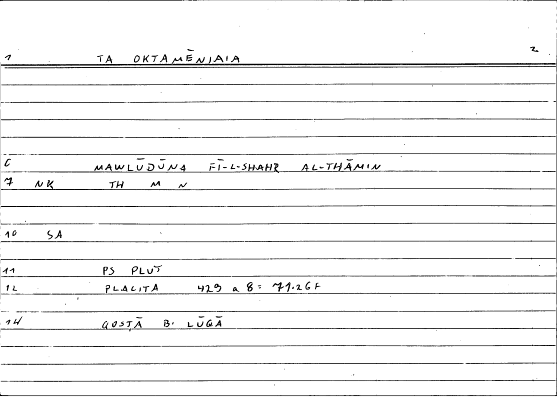 1 TA OKTAMĒNIAIA 2
6 MAWLŪDŪNA FĪ-L-SHAHR AL-THĀMIN
7 NK TH M N
10 SA
11 PS PLUT
12 PLACITA 429 a 8 = 71.26 F
14 QOSṬĀ B. LŪQĀ